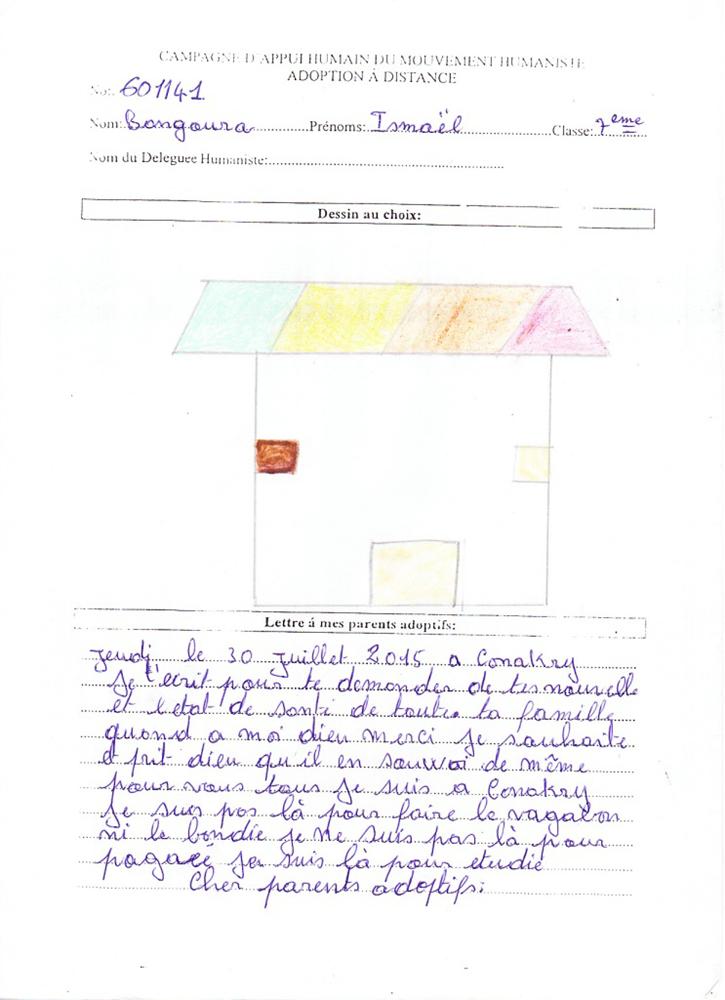 CAMPAGNE D'APPUI HUMAIN DU MOUVEMENT HUMANISTE
ADOPTION Á DISTANCE
No:. 601141
Nom: Bangoura Prénoms: Ismaël Classe: 7eme
Nom du Deleguee Humaniste:
Dessin au choix:
Lettre á mes parents adoptifs:
jeudi le 30 juillet 2015 a Conakry
Je t'ecrit pour te demander de tes nouvelle
et l'etat de santé de toute ta famille
quand a moi dieu merci je souhaite
et prit dieu qu'il en soit de même
pour vous tous je suis a Conakry
je suis pas là pour faire le vagabon
ni le bondie je ne suis pas là pour
pagacé je suis là pour etudié
Cher parents adoptifs;